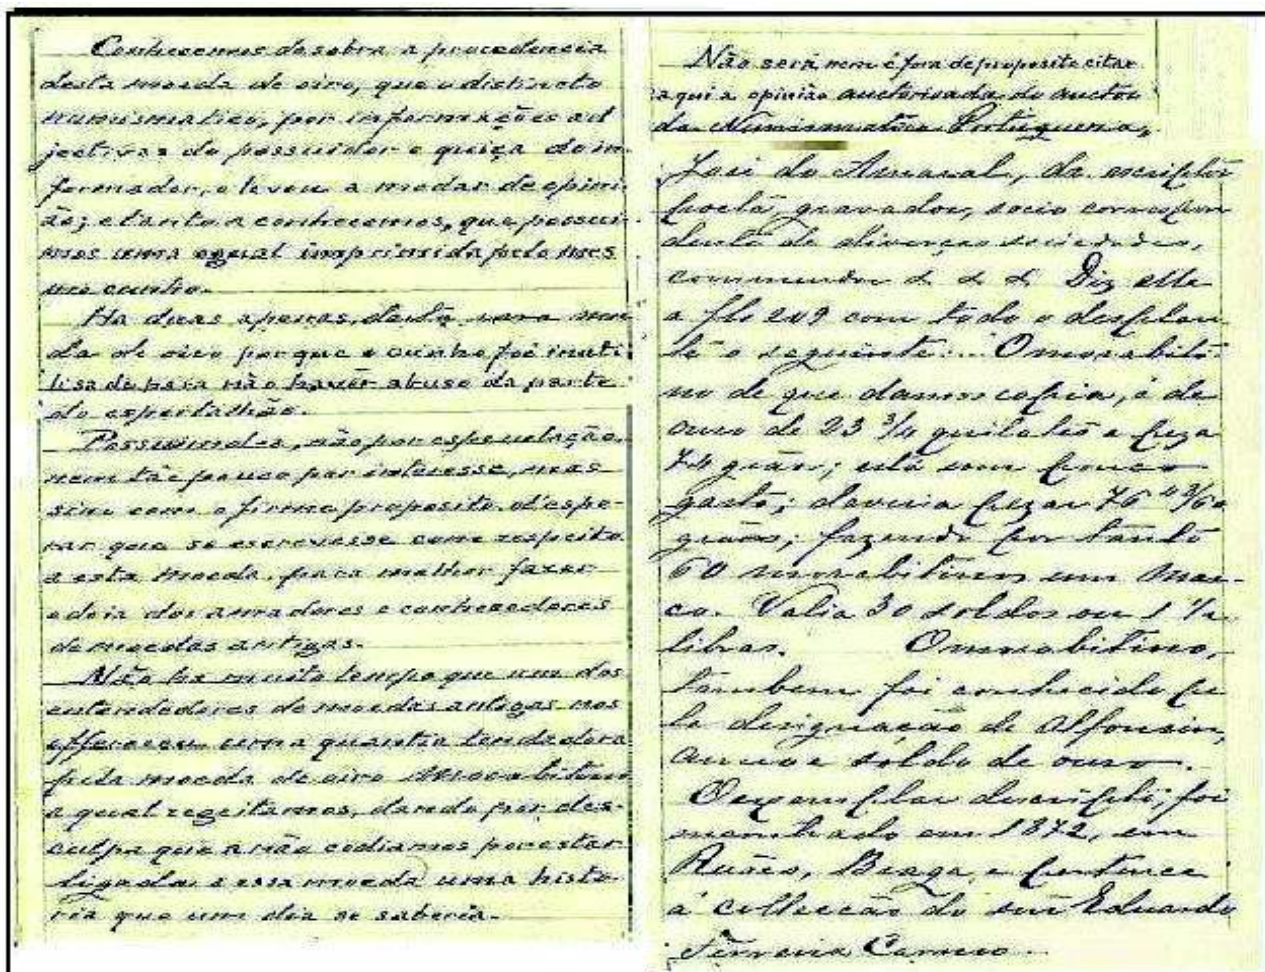 Conhecemos de sobra a procedencia
desta moeda de oiro, que o distincto
numismatico, por informações ad
jectivas do possuidor e quiçá do in-
formador, o levou a mudar de opini-
ão; e tanto a conhecemos, que possui-
mos uma egual imprimida pelo mes
mo cunho.
Ha duas apenas, desta rara moe
da de oiro porque o cunho foi inuti
lisado para não haver abuso da parte
do espertalhão.
Possuimol-a, não por especulação,
nem tão pouco por interesse, mas
sim com o firme proposito d'espe-
rar que se escrevesse com respeito
a esta moeda, para melhor fazer
edeia dos amadores e conhecedores
de moedas antigas.
Não ha muito tempo que um dos
entendedores de moedas antigas nos
offereceu uma quantia tentadora
pela moeda de oiro Morabitino
a qual regeitamos, dando por des-
culpa que a não cediamos por estar
ligada a essa moeda uma histo-
ria que um dia se saberia.
Não será nem é fora de proposito citar
aqui a opinião auctorisada do auctor
da Numismatica Portugueza,
José do Amaral, da escriptor
poeta, gravador, socio correspon
dente de diversas sociedades,
commendor & & & Diz elle
a fls 209 com todo o desplan-
te o seguinte:... O morabiti-
no de que damos copia, é de
ouro de 23 3/4 quilates e peza
74 grãos; está um pouco
gasto; deveria pezar 76 48/60
grãos; fazendo por tanto
60 morabitinos um mar-
co. Valia 30 soldos ou 1 1/2
libras. O morabitino,
tambem foi conhecido pe
la designação de Alfonsin,
aureo e soldo de ouro.
O exemplar descripto, foi
encontrado em 1872, em
Ruães, Braga, e pertence
á collecção do snr Eduardo
Ferreira Carmo.